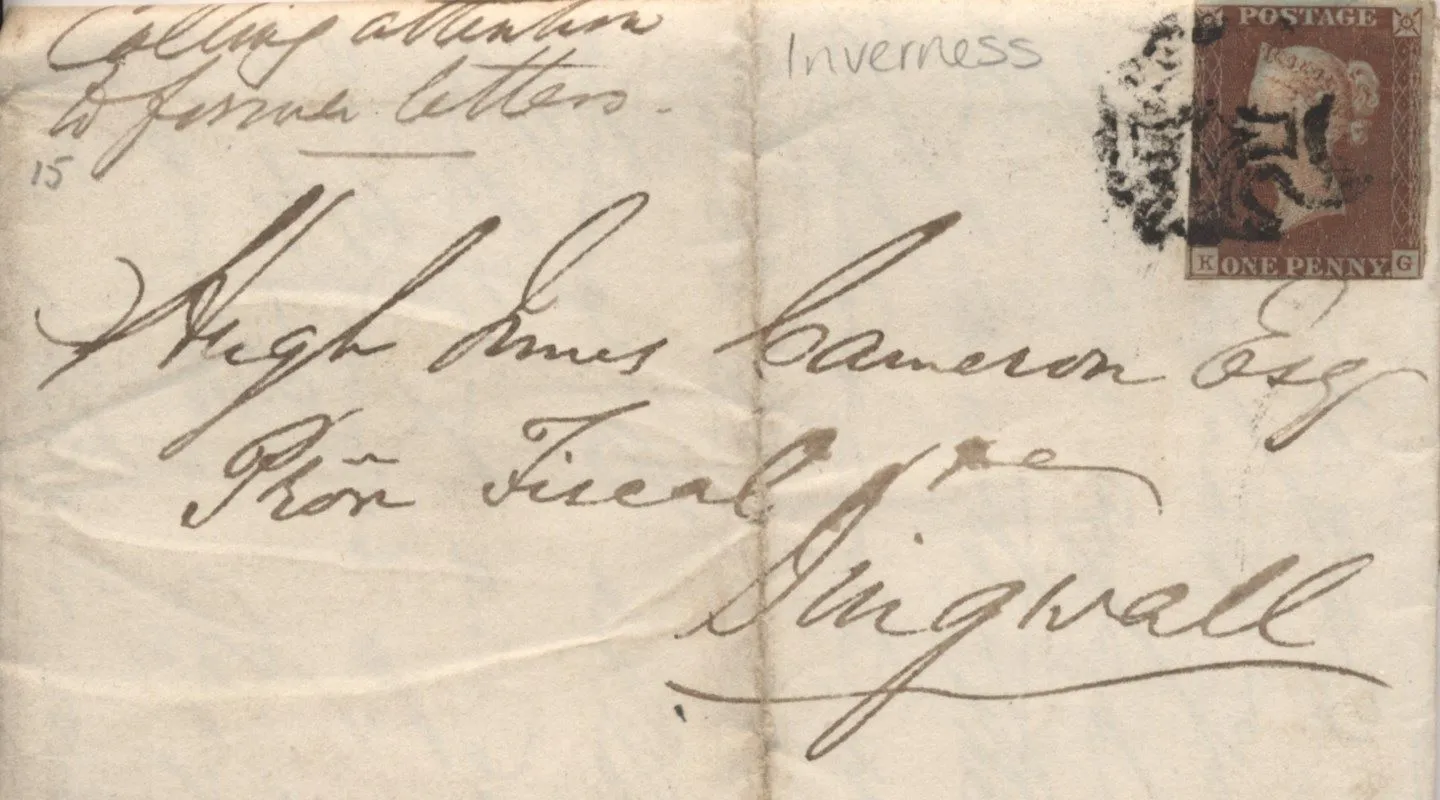 Calling attention
to former letters.
Inverness
15
POSTAGE
ONE PENNY
K G
Hugh Innes Cameron Esq
Prōr Fiscal
Dingwall